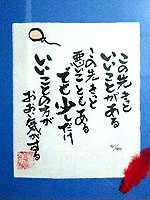 この先きっと
いいことがある
この先きっと
悪いこともある
でも少しだけ
いいことの方が
おおい気がする